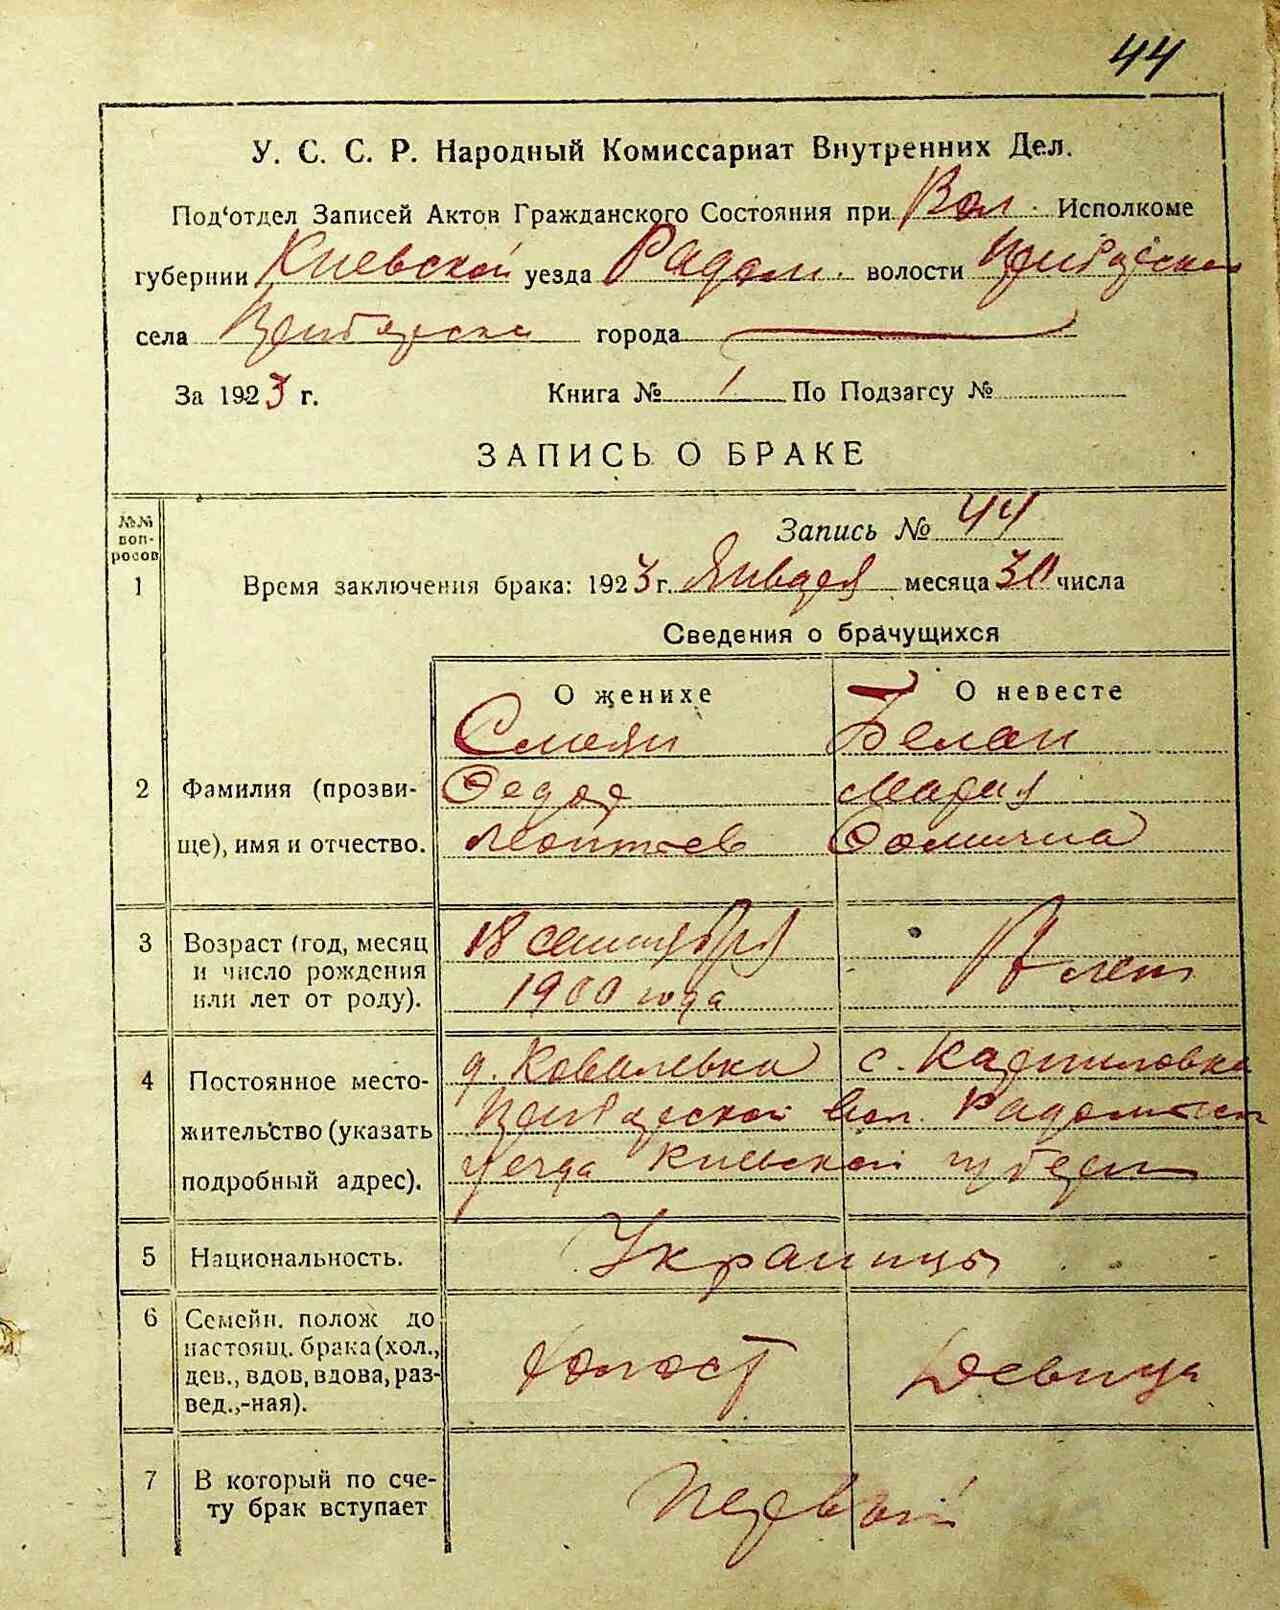 44
У. С. С. Р. Народный Комиссариат Внутренних Дел.
Под‘отдел Записей Актов Гражданского Состояния при Вол. Исполкоме
губернии Киевской уезда Радом. волости
села города
За 1923 г. Книга № 1 По Подзагсу №
ЗАПИСЬ О БРАКЕ
№№ воп-росов
Запись № 44
1 Время заключения брака: 1923 г. Января месяца 30 числа
Сведения о брачущихся
О женихе О невесте
Смоян Белан
2 Фамилия (прозви- Федор Мария
ще), имя и отчество. Фомична
3 Возраст (год, месяц 18 сентября
и число рождения лет
или лет от роду). 1900 года
4 Постоянное место- д. Ковалевка с.
жительство (указать вол.
подробный адрес). уезда Киевской губерн
5 Национальность. Украинцы
6 Семейн. полож до
настоящ. брака (хол., Холост Девица
дев., вдов, вдова, раз-
вед.,-ная).
7 В который по сче- Первый
ту брак вступает